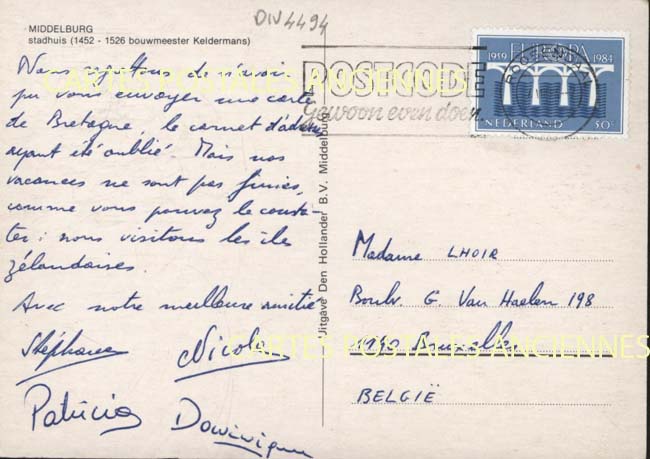 DIV4494
MIDDELBURG
stadhuis (1452 - 1526 bouwmeester Keldermans)
Nous regrettons de n'avoir
pu vous envoyer une carte
de Bretagne, le carnet d'adresses
ayant été oublié. Mais nos
vacances ne sont pas finies,
comme vous pouvez le consta-
ter : nous visitons les îles
zélandaises.
Avec notre meilleure amitié
Stéphane Nicole
Patricia Dominique
Uitgave Den Hollander B.V. Middelburg
POSTCODE
gewoon even doen
1959 EUROPA 1984
NEDERLAND 50c
Madame LHOIR
Boulv G. Van Haelen 198
1190 Bruxelles
BELGIË
CARTES POSTALES ANCIENNES
CARTES POSTALES ANCIENNES